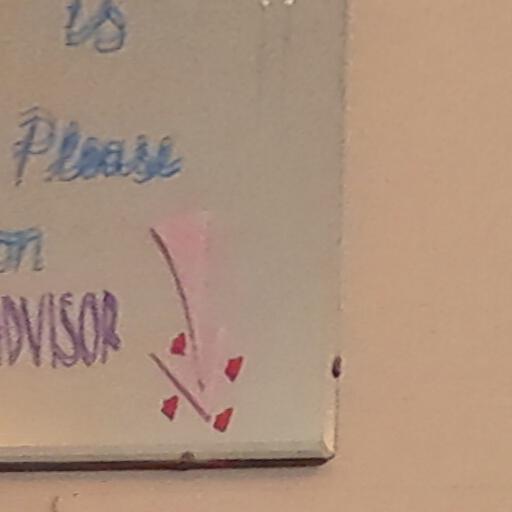 is
Please
on
ADVISOR